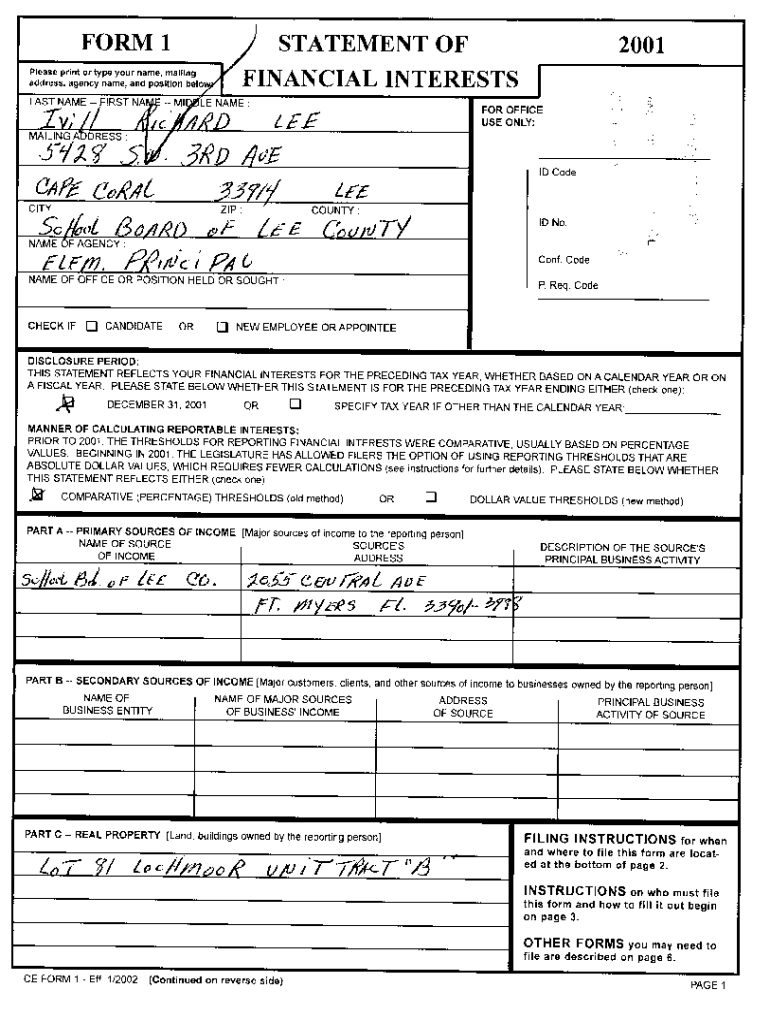 FORM 1
STATEMENT OF
FINANCIAL INTERESTS
2001
Please print or type your name, mailing
address, agency name, and position below:
LAST NAME -- FIRST NAME -- MIDDLE NAME :
Ivill RICHARD LEE
MAILING ADDRESS :
5428 S.W. 3RD AVE
CAPE CORAL 33914 LEE
CITY ZIP : COUNTY :
School BOARD oF LEE COUNTY
NAME OF AGENCY :
ELEM. PRINCIPAL
NAME OF OFFICE OR POSITION HELD OR SOUGHT :
CHECK IF ☐ CANDIDATE OR ☐ NEW EMPLOYEE OR APPOINTEE
FOR OFFICE
USE ONLY:
ID Code
ID No.
Conf. Code
P. Req. Code
DISCLOSURE PERIOD:
THIS STATEMENT REFLECTS YOUR FINANCIAL INTERESTS FOR THE PRECEDING TAX YEAR, WHETHER BASED ON A CALENDAR YEAR OR ON
A FISCAL YEAR. PLEASE STATE BELOW WHETHER THIS STATEMENT IS FOR THE PRECEDING TAX YEAR ENDING EITHER (check one):
☒ DECEMBER 31, 2001 OR ☐ SPECIFY TAX YEAR IF OTHER THAN THE CALENDAR YEAR:
MANNER OF CALCULATING REPORTABLE INTERESTS:
PRIOR TO 2001, THE THRESHOLDS FOR REPORTING FINANCIAL INTERESTS WERE COMPARATIVE, USUALLY BASED ON PERCENTAGE
VALUES. BEGINNING IN 2001, THE LEGISLATURE HAS ALLOWED FILERS THE OPTION OF USING REPORTING THRESHOLDS THAT ARE
ABSOLUTE DOLLAR VALUES, WHICH REQUIRES FEWER CALCULATIONS (see instructions for further details). PLEASE STATE BELOW WHETHER
THIS STATEMENT REFLECTS EITHER (check one)
☒ COMPARATIVE (PERCENTAGE) THRESHOLDS (old method) OR ☐ DOLLAR VALUE THRESHOLDS (new method)
PART A -- PRIMARY SOURCES OF INCOME [Major sources of income to the reporting person]
NAME OF SOURCE
OF INCOME
SOURCE'S
ADDRESS
DESCRIPTION OF THE SOURCE'S
PRINCIPAL BUSINESS ACTIVITY
School Bd. oF LEE CO. 2055 CENTRAL AVE
FT. MYERS FL. 33901-3988
PART B -- SECONDARY SOURCES OF INCOME [Major customers, clients, and other sources of income to businesses owned by the reporting person]
NAME OF
BUSINESS ENTITY
NAME OF MAJOR SOURCES
OF BUSINESS' INCOME
ADDRESS
OF SOURCE
PRINCIPAL BUSINESS
ACTIVITY OF SOURCE
PART C -- REAL PROPERTY [Land, buildings owned by the reporting person]
LOT 81 LOCHMOOR UNIT TRACT "B"
FILING INSTRUCTIONS for when
and where to file this form are locat-
ed at the bottom of page 2.
INSTRUCTIONS on who must file
this form and how to fill it out begin
on page 3.
OTHER FORMS you may need to
file are described on page 6.
CE FORM 1 - Eff. 1/2002 (Continued on reverse side)
PAGE 1